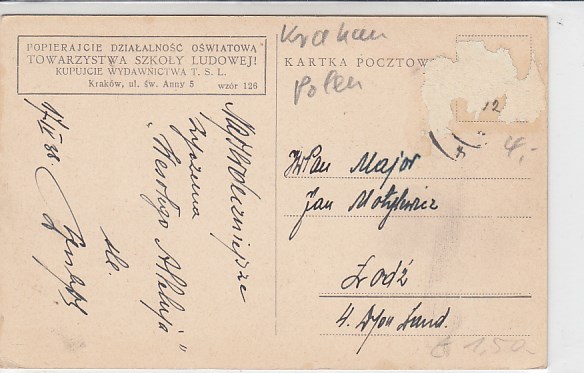 POPIERAJCIE DZIAŁALNOŚĆ OŚWIATOWĄ
TOWARZYSTWA SZKOŁY LUDOWEJ!
KUPUJCIE WYDAWNICTWA T. S. L.
Kraków, ul. św. Anny 5 wzór 126
Krakau
Polen
KARTKA POCZTOWA
12
4,-
Najserdeczniejsze
życzenia
"Wesołego Alleluja"
śle
WPan Major
Jan
Łodź
4.
€ 1,50